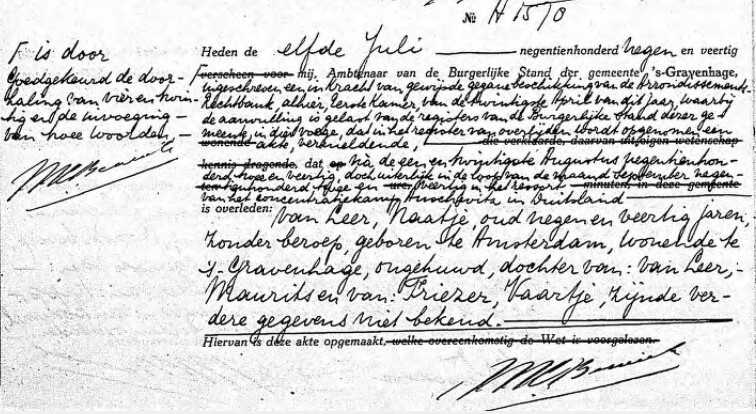 № A 1570
Heden de elfde Juli negentienhonderd negen en veertig
F verscheen voor mij, Ambtenaar van de Burgerlijke Stand der gemeente 's-Gravenhage,
ingeschreven in kracht van gewijsde gegane beschikking van de Arrondissements-
Rechtbank, alhier, Eerste Kamer, van de twintigste April van dit jaar, waarbij
de aanvulling is gelast van de registers van de Burgerlijke Stand dezer ge-
meente, in dier voege, dat in het register van overlijden wordt opgenomen een
wonende akte, vermeldende, die verklaarde, daarvan uit eigen wetenschap
kennis dragende, dat op na de een en twintigste Augustus negentienhon-
derd twee en veertig, doch uiterlijk in de loop van de maand September negen-
tienhonderd twee en uur, veertig in het ressort minuten, in deze gemeente
van het concentratiekamp Auschwitz in Duitsland
is overleden:
van Leer, Naatje, oud negen en veertig jaren,
zonder beroep, geboren te Amsterdam, wonende te
's-Gravenhage, ongehuwd, dochter van: van Leer,-
Maurits en van: Friezer, Vaartje, zijnde ver-
dere gegevens niet bekend.
Hiervan is deze akte opgemaakt, welke overeenkomstig de Wet is voorgelezen.
F is door
goedgekeurd de door-
haling van vier en twin-
tig en de invoeging
van twee woorden,-